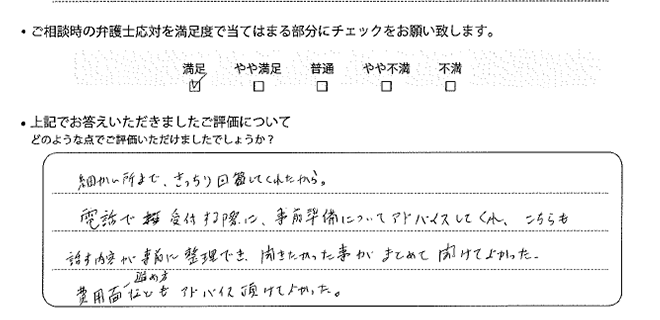 ・ご相談時の弁護士応対を満足度で当てはまる部分にチェックをお願い致します。
満足 やや満足 普通 やや不満 不満
・上記でお答えいただきましたご評価について
どのような点でご評価いただけましたでしょうか?
細かい所まで、きっちり回答してくれたから。
電話で受付する際に、事前準備についてアドバイスしてくれ、こちらも
話す内容が事前に整理でき、聞きたかった事がまとめて聞けてよかった。
費用面、進め方などもアドバイス頂けてよかった。